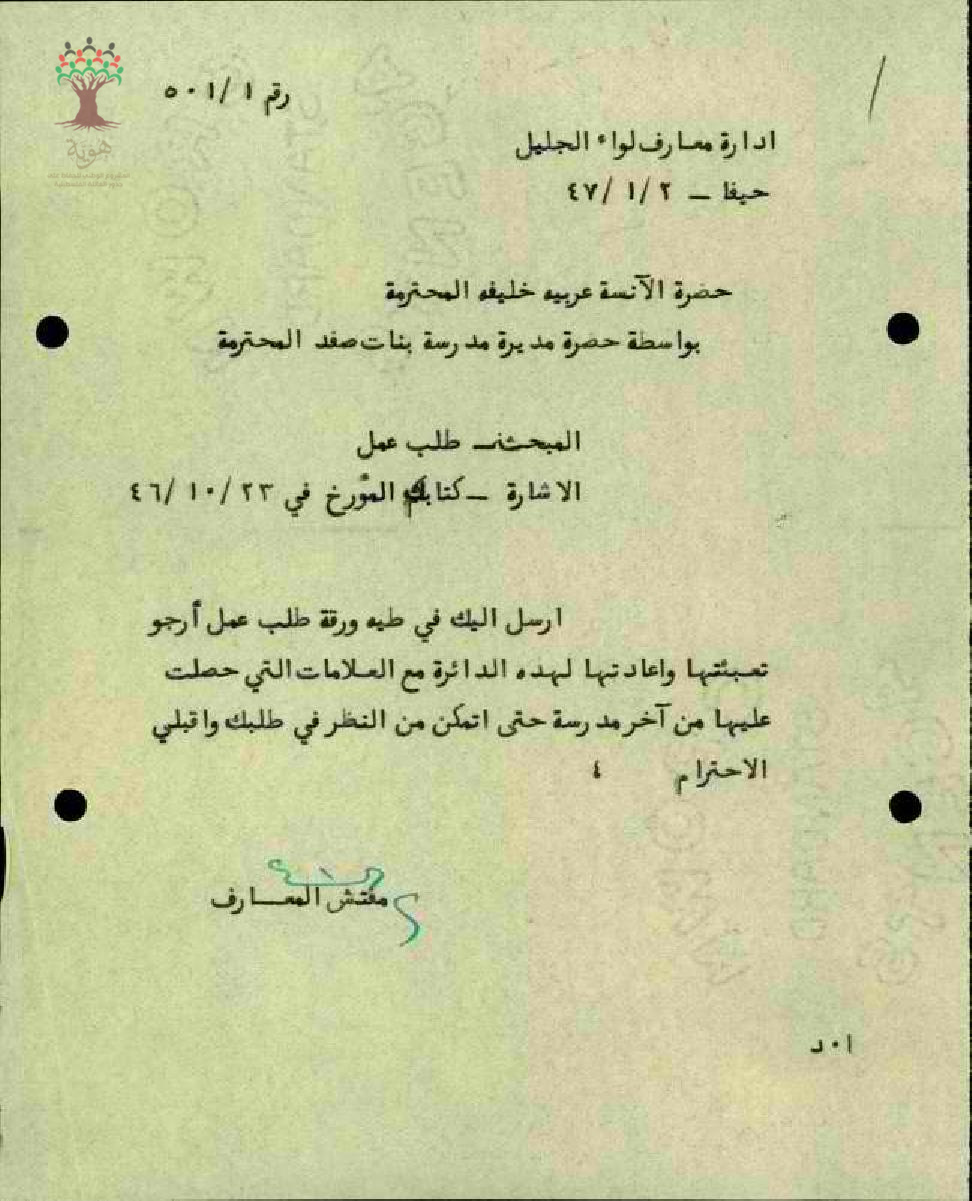 هوية
رقم ١/ ٥٠١
ادارة معارف لواء الجليل
حيفا — ٢ /١ /٤٧
حضرة الآنسة عربيه خليفه المحترمة
بواسطة حضرة مديرة مدرسة بنات صفد المحترمة
المبحث:— طلب عمل
الاشارة — كتابك المؤرخ في ٢٣ /١٠ /٤٦
ارسل اليك في طيه ورقة طلب عمل أرجو
تعبئتها واعادتها لهذه الدائرة مع العلامات التي حصلت
عليها من آخر مدرسة حتى اتمكن من النظر في طلبك واقبلي
الاحترام ،
مفتش المعارف
ا٠د